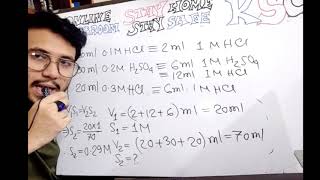 ONLINE STAY HOME
CLASSROOM STAY SAFE KSC
20ml 0.1M HCl ≡ 2ml 1M HCl
30ml 0.2M H₂SO₄ ≡ 6ml 1M H₂SO₄
≡ 12ml 1M HCl
20ml 0.3M HCl ≡ 6ml 1M HCl
V₁S₁ = V₂S₂ V₁ = (2+12+6) ml = 20ml
⇒ S₂ = 20×1/70 S₁ = 1M
⇒ S₂ = 0.29M V₂ = (20+30+20) ml = 70ml
S₂ = ?